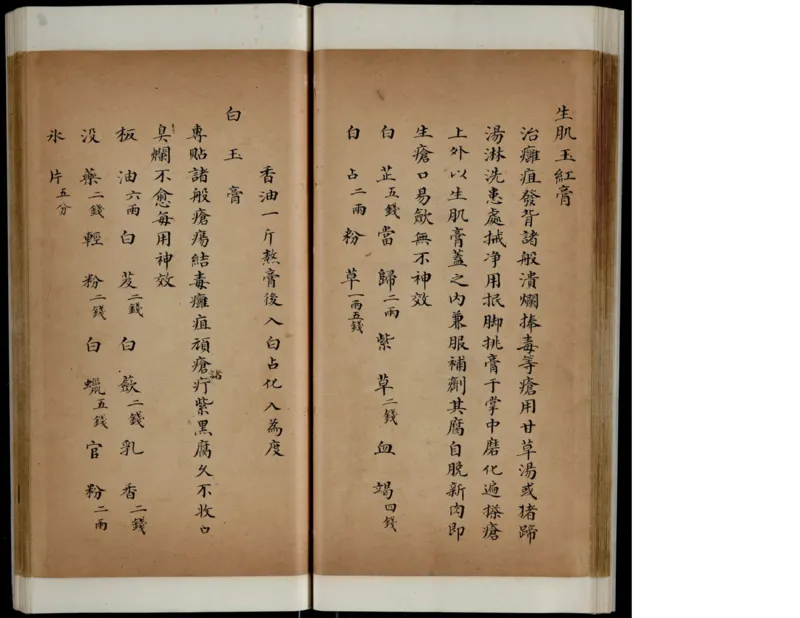 生肌玉紅膏
治癰疽發背諸般潰爛捧毒等瘡用甘草湯或猪蹄
湯淋洗患處拭净用抿脚挑膏于掌中磨化遍搽瘡
上外以生肌膏蓋之内兼服補劑其腐自脱新肉即
生瘡口易歛無不神效
白芷五錢當歸二兩紫草二錢血竭四錢
白占二兩粉草一兩五錢
香油一斤熬膏後入白占化入為度
白玉膏
專貼諸般瘡瘍結毒癰疽頑瘡疔諸紫黑腐久不收口
臭爛不愈每用神效
板油六兩白芨二錢白歛二錢乳香二錢
没藥二錢輕粉二錢白蠟五錢官粉二兩
氷片五分